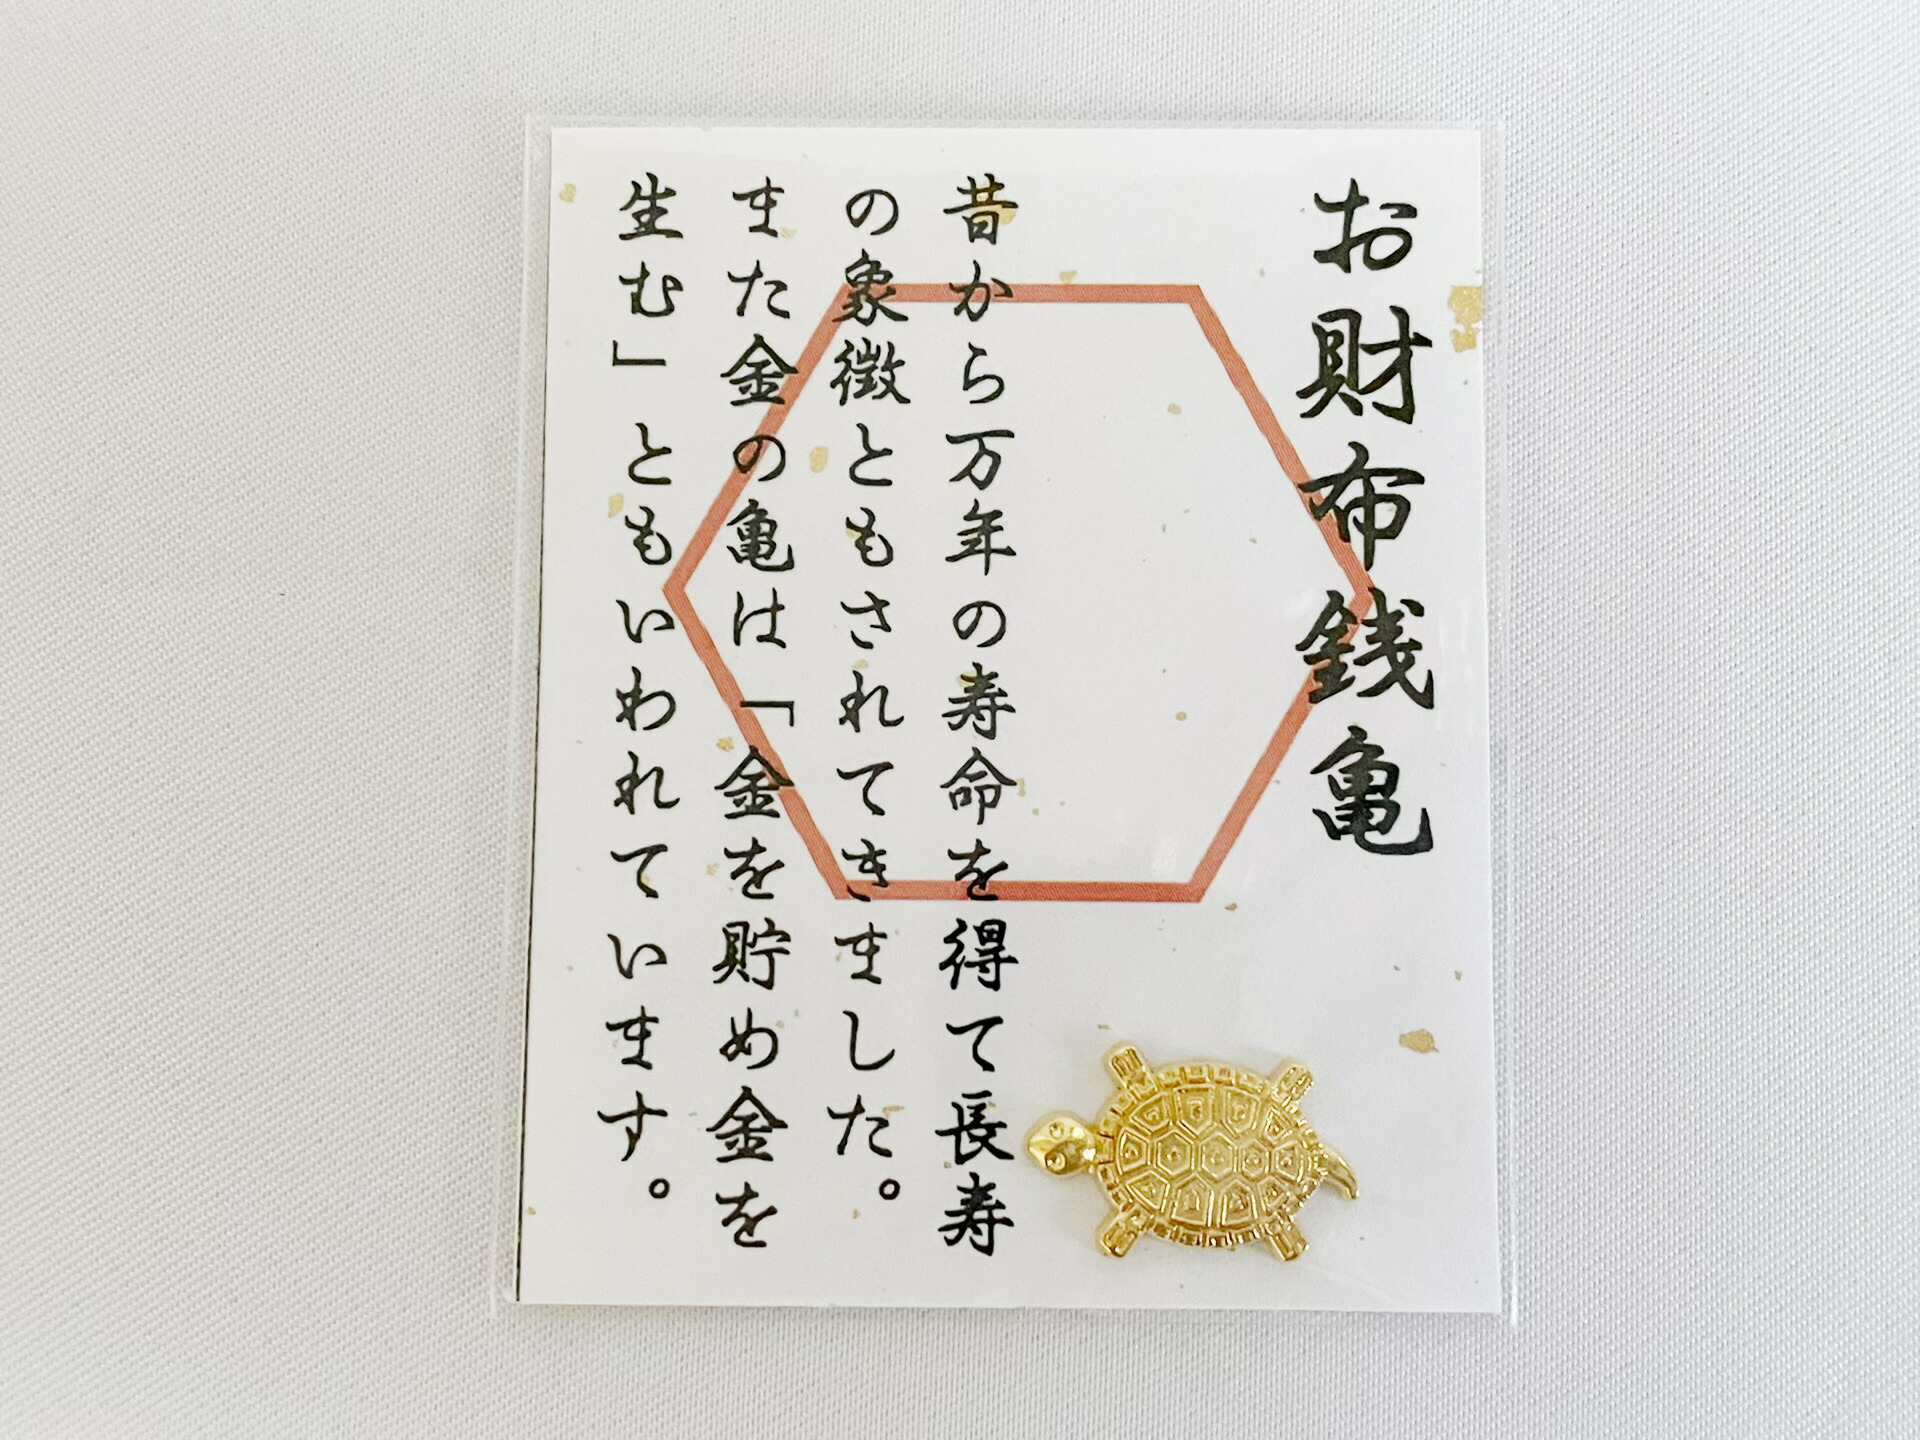 お財布銭亀
昔から万年の寿命を得て長寿
の象徴ともされてきました。
また金の亀は「金を貯め金を
生む」ともいわれています。